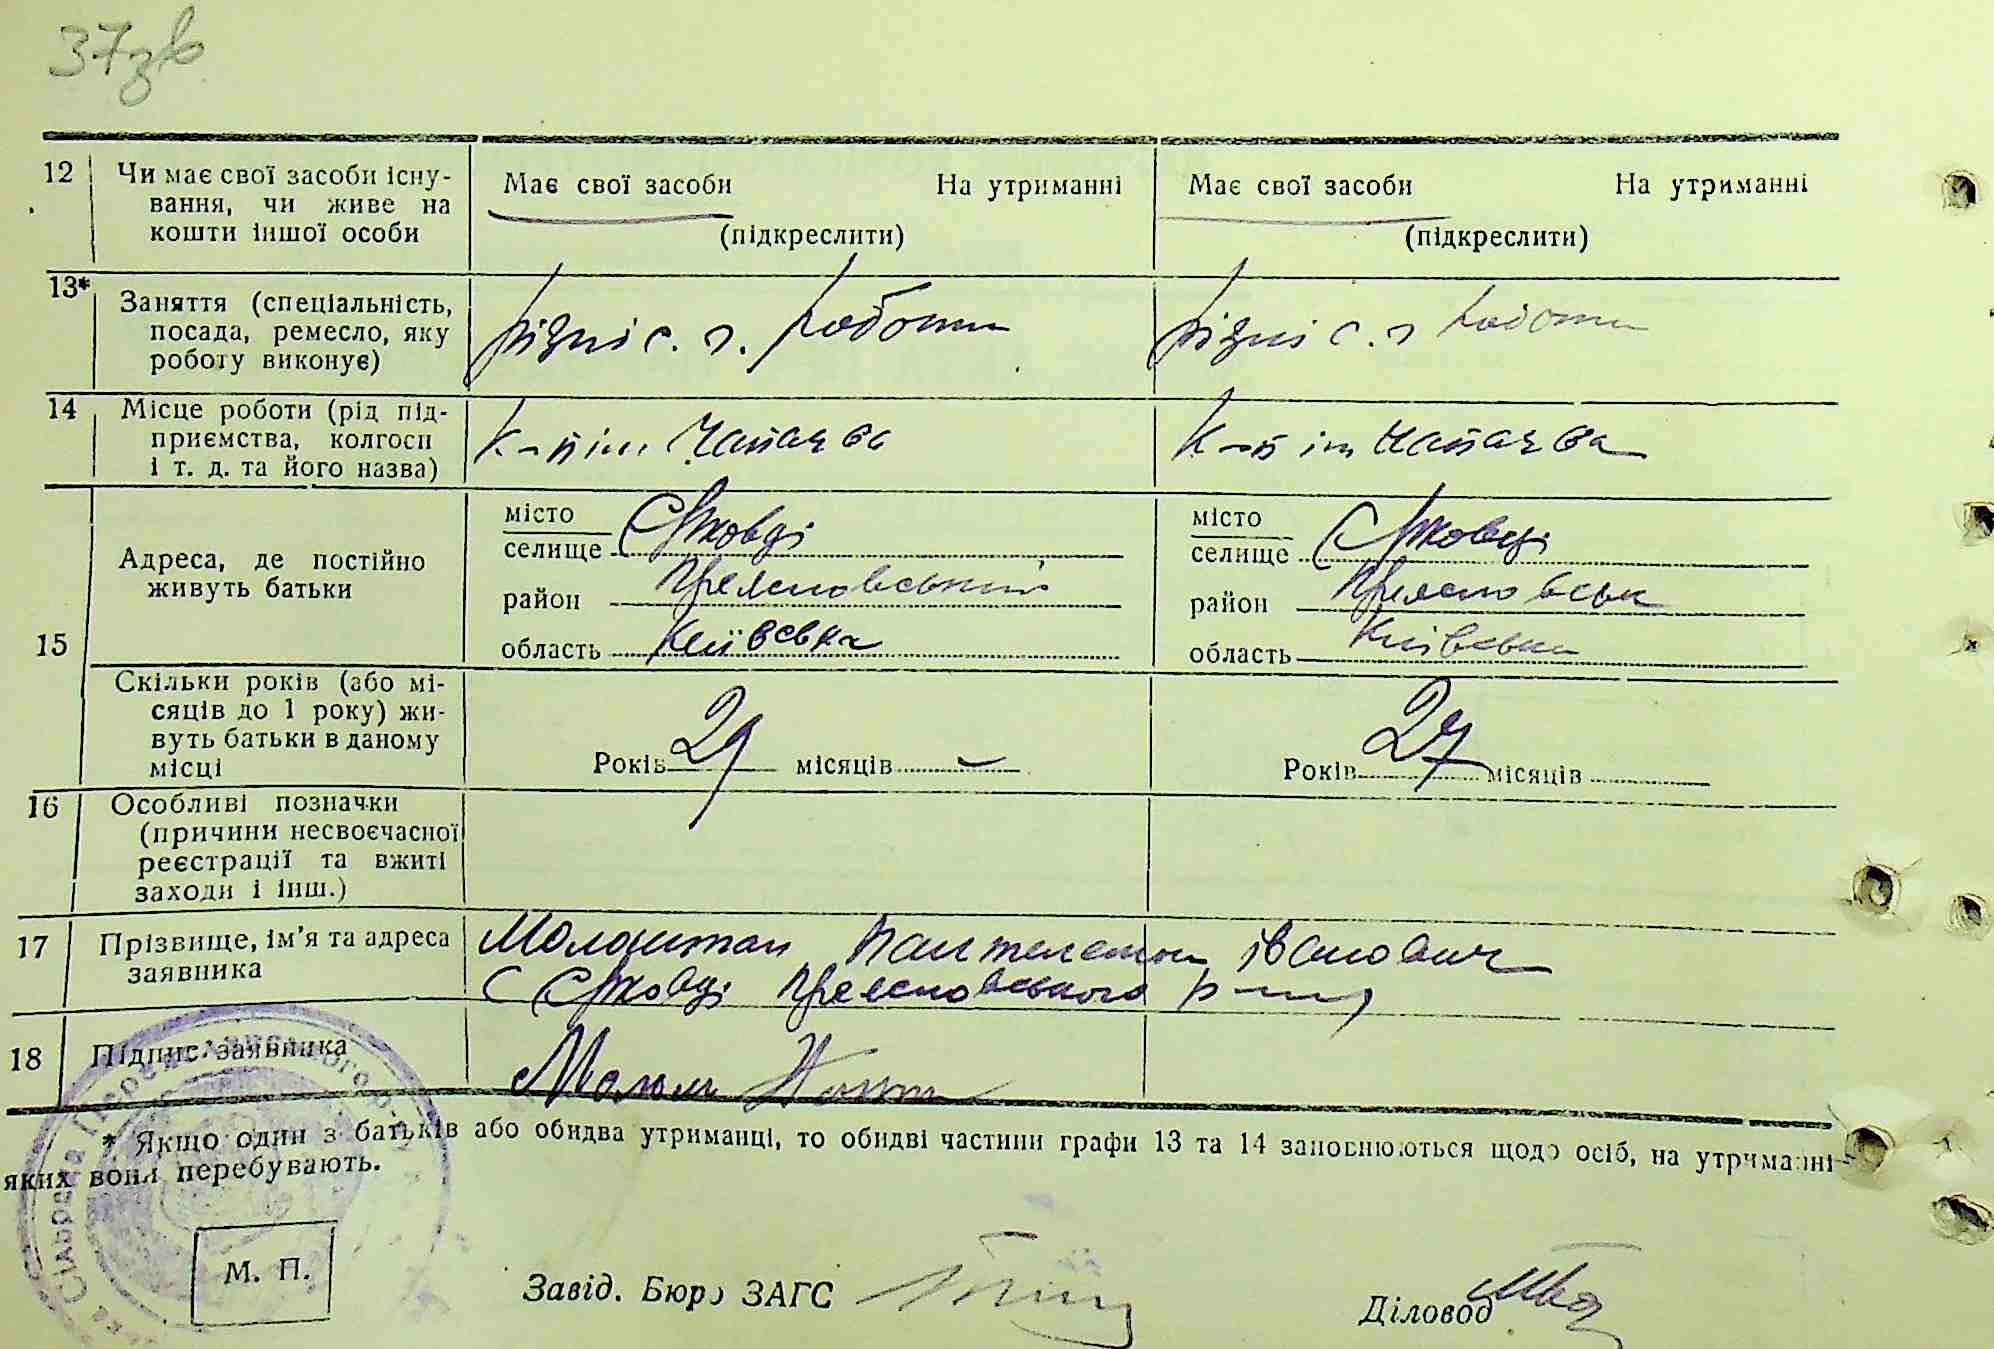 37зв
12 Чи має свої засоби існу- Має свої засоби На утриманні Має свої засоби На утриманні
вання, чи живе на
кошти іншої особи (підкреслити) (підкреслити)
13* Заняття (спеціальність, різні с. г. роботи різні с. г роботи
посада, ремесло, яку
роботу виконує)
14 Місце роботи (рід під- К-п ім Чапаєва К-п ім Чапаєва
приємства, колгосп
і т. д. та його назва)
15 Адреса, де постійно
живуть батьки
місто
селище Єрковці
район
область Київська
місто
селище Єрковці
район
область Київська
Скільки років (або мі-
сяців до 1 року) жи-
вуть батьки в даному
місці
Років 29 місяців – Років 27 місяців
16 Особливі позначки
(причини несвоєчасної
реєстрації та вжиті
заходи і інш.)
17 Прізвище, ім'я та адреса Пантелемон Іванович
заявника с Єрковці р-ну
18 Підпис заявника
* Якщо один з батьків або обидва утриманці, то обидві частини графи 13 та 14 заповнюються щодо осіб, на утриманні
яких вони перебувають.
М. П.
Завід. Бюро ЗАГС
Діловод